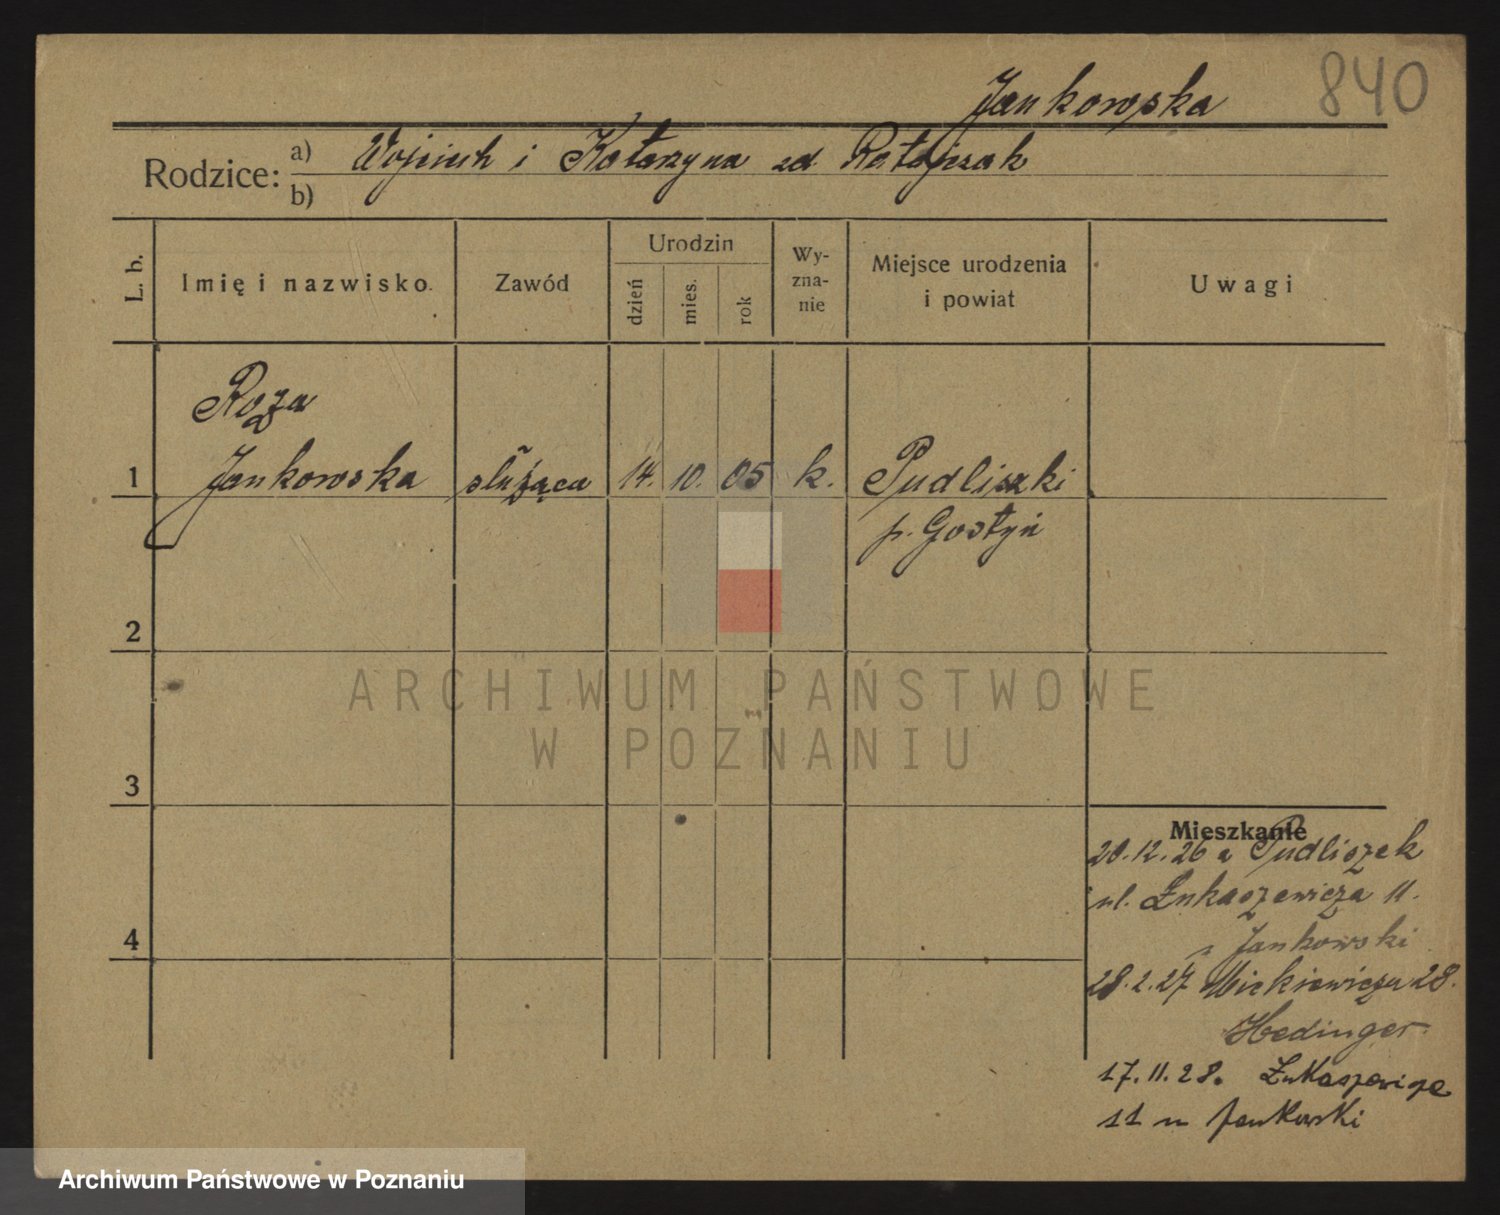 840
Jankowska
Rodzice: a) Wojciech i Katarzyna zd. Ratajczak
b)
L. b.
Imię i nazwisko.
Zawód
Urodzin
dzień
mies.
rok
Wy-
zna-
nie
Miejsce urodzenia
i powiat
Uwagi
Roza
1 Jankowska służąca 14. 10. 05 k. Pudliszki
p. Gostyń
2
3
4
Mieszkanie
20.12.26 z Pudliszek
ul. Łukaszewicza 11.
Jankowski
28.2.27 Mickiewicza 28.
Hedinger
17.11.28. Łukaszewicza
11 u Jankowski
ARCHIWUM PAŃSTWOWE
W POZNANIU
Archiwum Państwowe w Poznaniu